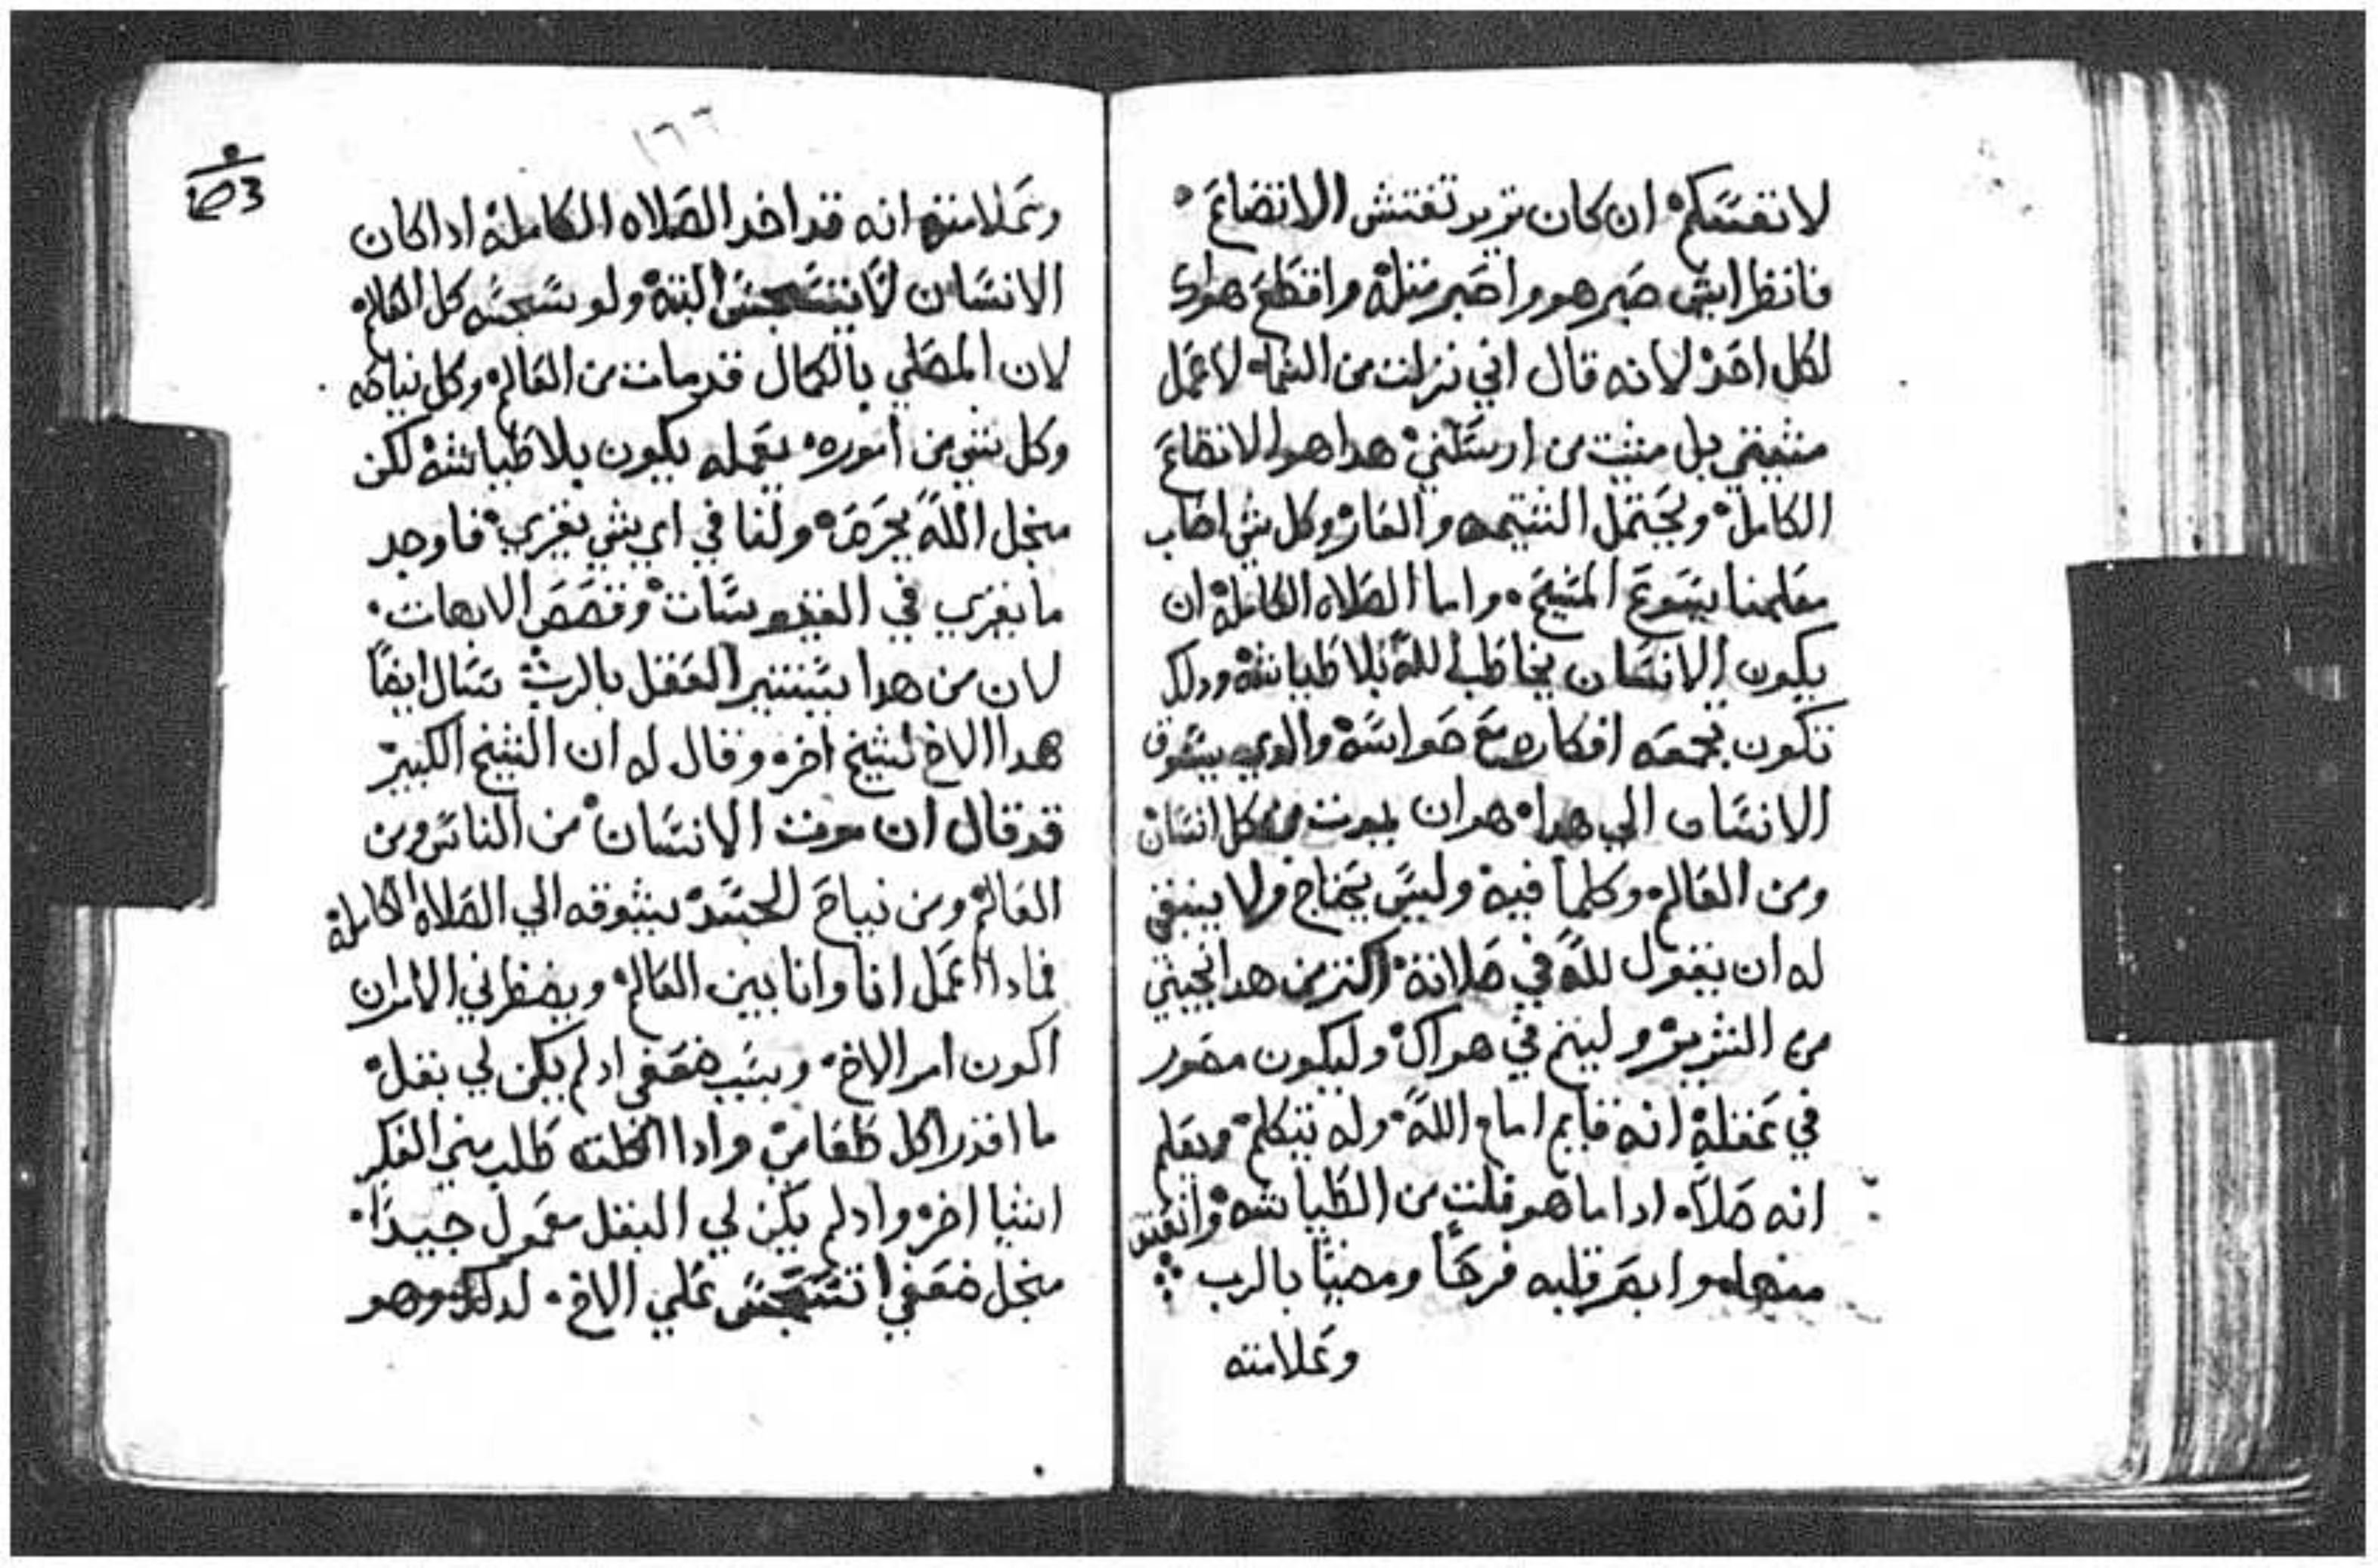 لانفسكم ان كان تريد تفتش الاتضاع
فانظر ايش صبر هو واصبر مثله واقطع هواك
لكل احد لانه قال اني نزلت من السما لا عمل
مشيتي بل مشيت من ارسلني هدا هو الاتضاع
الكامل ويحتمل الشتيمه والعار وكل شي اصاب
معلمنا يسوع المسيح واما الصلاه الكامله ان
يكون الانسان يخاطب الله بلا طياشه ودلك
تكون بجمعه افكاره مع حواسه والدي يسوق
الانسان الي هدا هو ان يموت من كل انسان
ومن العالم وكلما فيه وليس يحتاج ولا ينبغي
له ان يقول لله في صلاته اكتر من هدا نجيني
من الشرير وليتم في هواك وليكون مصور
في عقله انه قايم امام الله وله يتكلم ويعلم
انه صلاه ادا ما هو فلت من الطياشه وانعتق
منها وابصر قلبه فرحا ومضيا بالرب
وعلامته
١٦٦
وعلامته انه قد اخد الصلاه الكامله ادا كان
الانسان لا يتسجس البته ولو سجسه كل العالم
لان المصلي بالكمال قد مات من العالم وكل نياحه
وكل شي من اموره يعمله يكون بلا طياشه لكن
منجل الله يحرص ولنا في اي شي يغري فاوجد
ما يغري في القديسات وقصص الابهات
لان من هدا يستنير العقل بالرب سال ايضا
هدا الاخ لشيخ اخر وقال له ان الشيخ الكبير
قد قال ان موت الانسان من الناس ومن
العالم ومن نياح الجسد يسوقه الي الصلاه الكامله
فمادا اعمل انا وانا بين العالم ويضطرني الامر ان
اكون امر الاخ وبسبب ضعفي ادلم يكن لي بقل
ما اقدر اكل طعامي وادا اكلته طلب مني الفكر
اشيا اخر وادلم يكن لي البقل معمول جيدا
منجل ضعفي اتسجس علي الاخ لدلك وهو